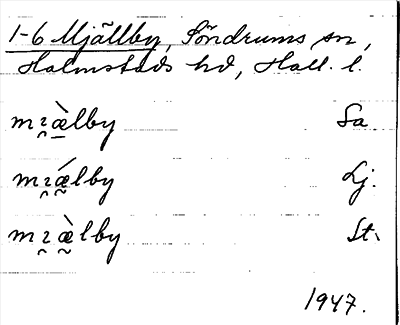 1-6 Mjällby, Söndrums sn,
Halmstads hd, Hall. l.
mı̯æ̀lby Sa
mı̯ǽlby Lj.
mı̯æ̀lby St.
1947.